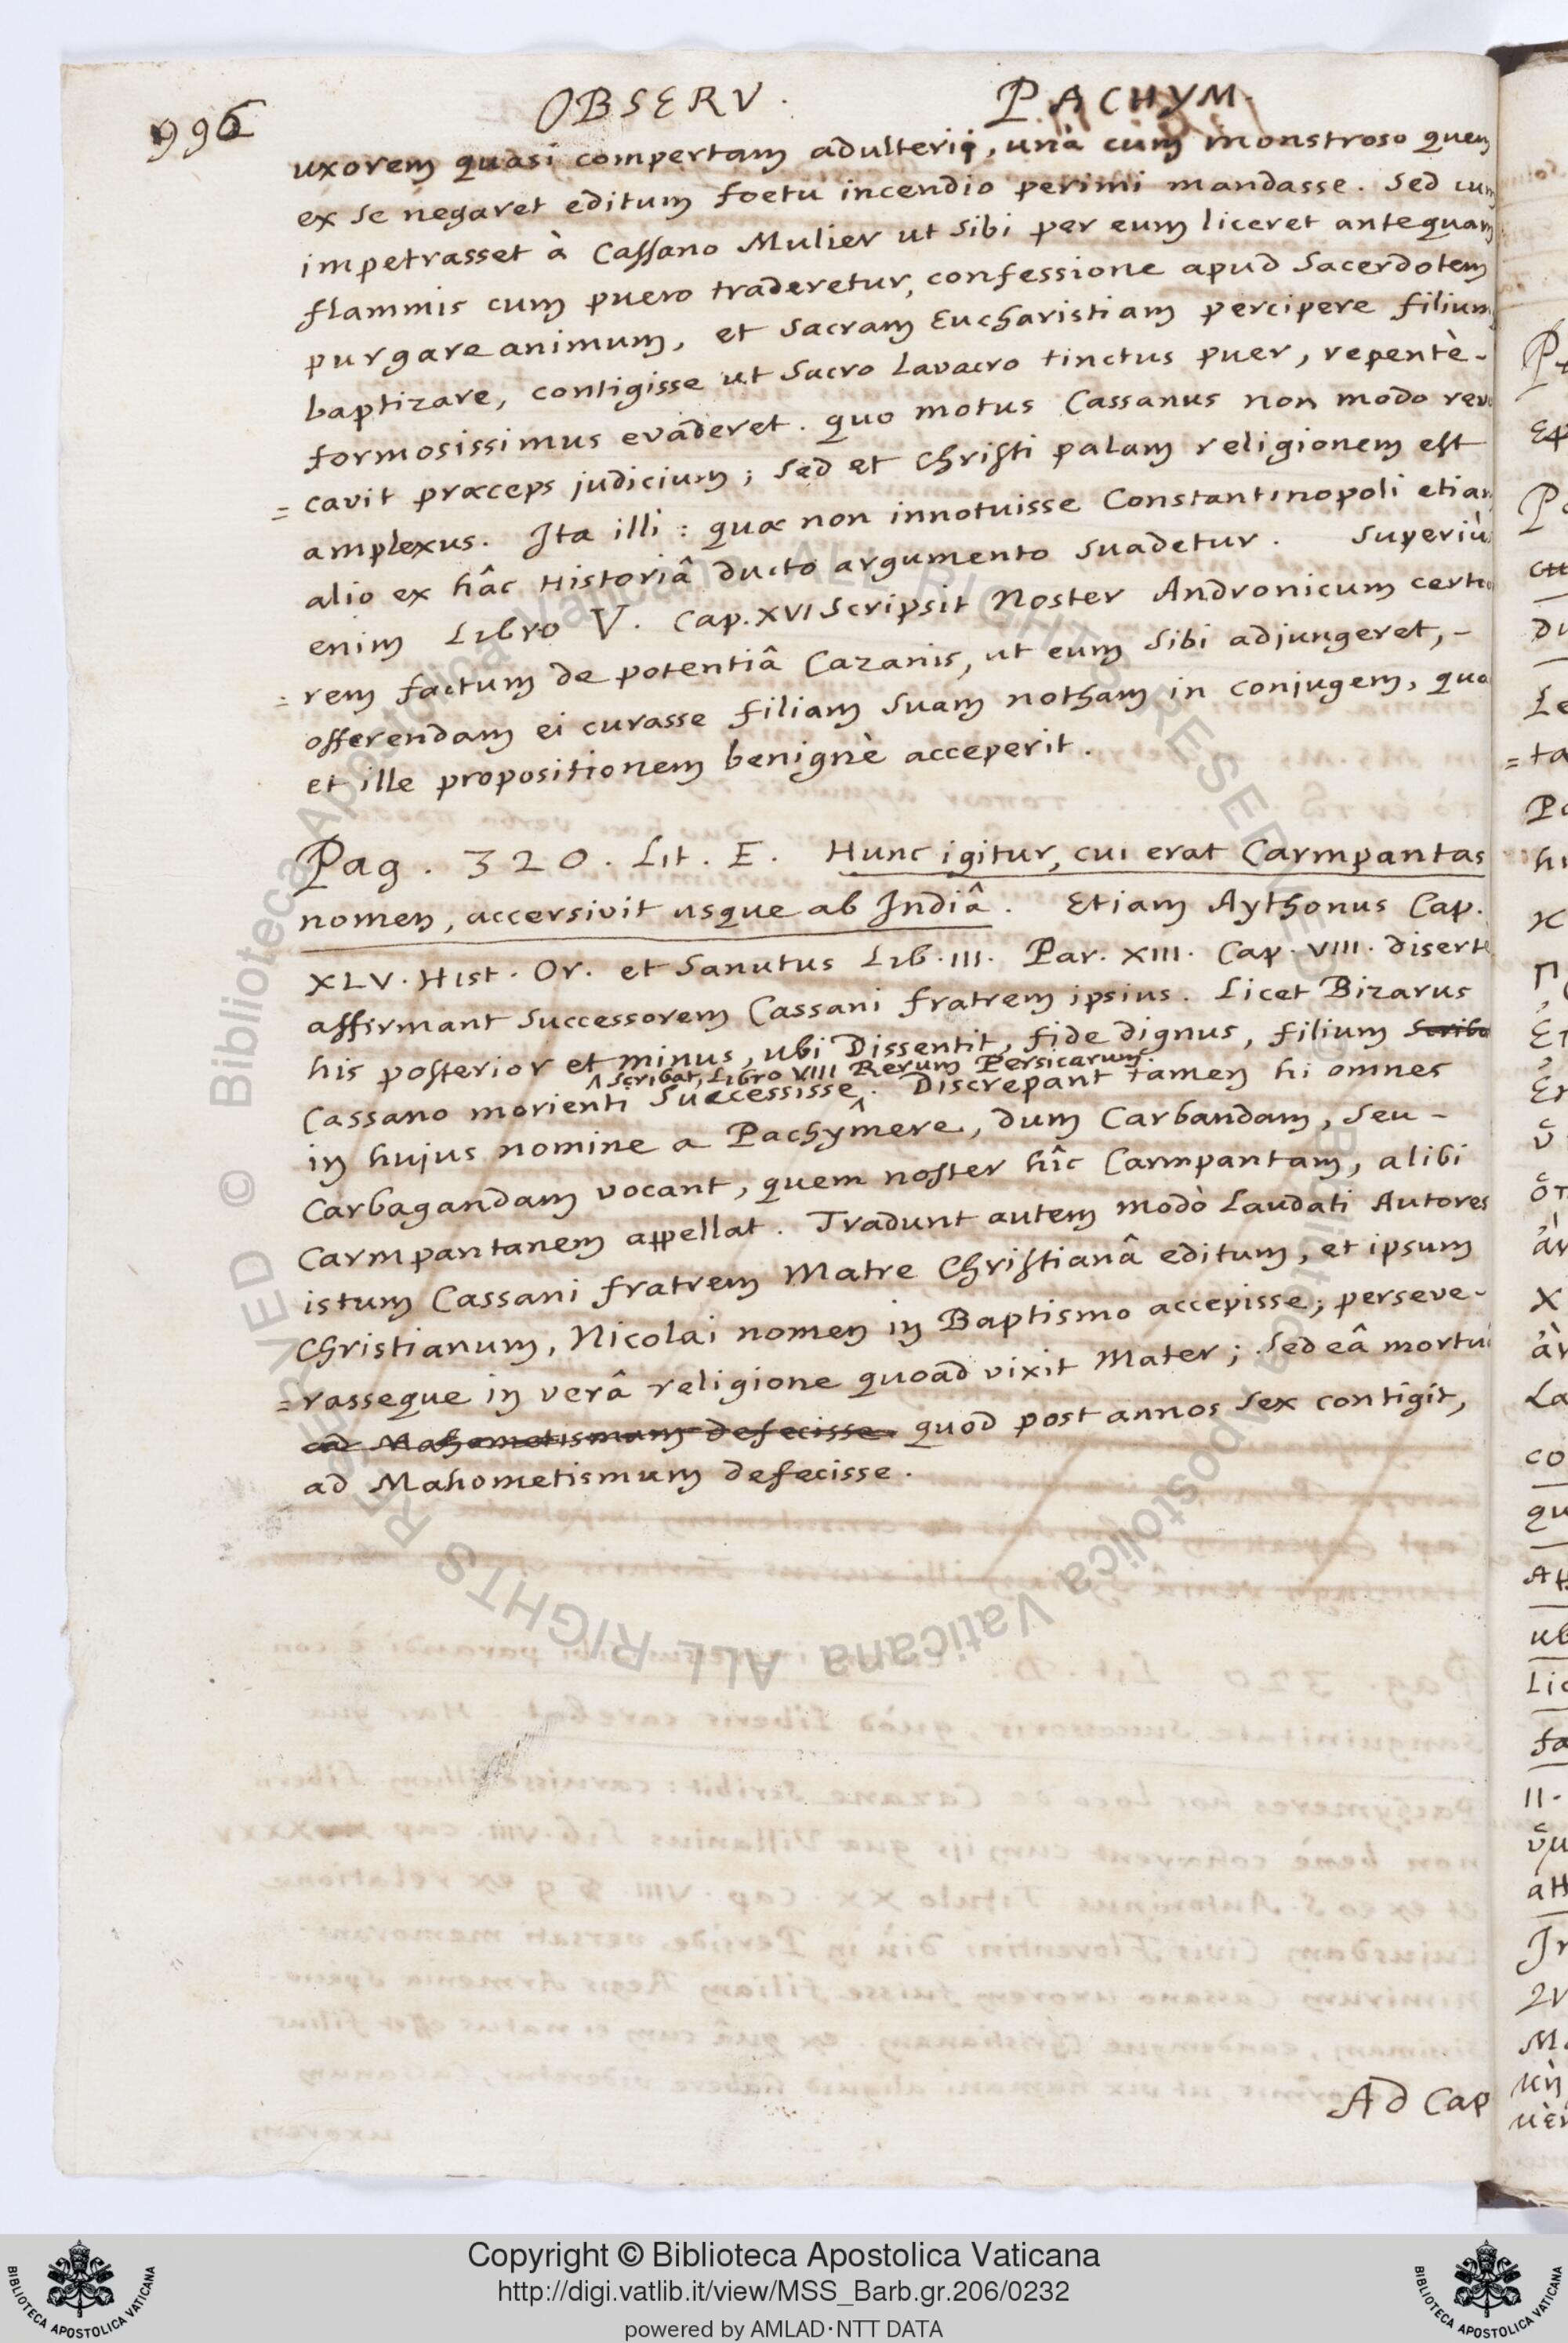 996
OBSERV. PACHYM.
uxorem quasi compertam adulterii, unà cum monstroso quem
ex se negaret editum foetu incendio perimi mandasse. Sed cum
impetrasset à Cassano Mulier ut sibi per eum liceret antequam
flammis cum puero traderetur, confessione apud Sacerdotem
purgare animum, et Sacram Eucharistiam percipere filium
baptizare, contigisse ut Sacro Lavacro tinctus puer, repentè-
formosissimus evaderet. quo motus Cassanus non modo revo
= cavit præceps judicium; sed et Christi palam religionem est
amplexus. Ita illi: quæ non innotuisse Constantinopoli etiam
alio ex hâc Historiâ ducto argumento suadetur. Superiùs
enim Libro V. Cap. XVI scripsit Noster Andronicum certio
= rem factum de potentiâ Cazanis, ut eum sibi adjungeret,-
offerendam ei curasse filiam suam notham in conjugem, qua
et ille propositionem benignè acceperit.
Pag. 320. Lit. E. Hunc igitur, cui erat Carmpantas
nomen, accersivit usque ab Indiâ. Etiam Aythonus Cap.
XLV. Hist. Or. et Sanutus Lib. III. Par. XIII. Cap. VIII. disertè
affirmant Successorem Cassani fratrem ipsius. Licet Bizarus
his posterior et minus, ubi Dissentit, fide dignus, filium
scribat, Libro VIII Rerum Persicarum.
Cassano morienti Successisse. Discrepant tamen hi omnes
in hujus nomine a Pachymere, dum Carbandam, seu-
Carbagandam vocant, quem noster hîc Carmpantam, alibi
Carmpantanem appellat. Tradunt autem modò Laudati Autores
istum Cassani fratrem Matre Christianâ editum, et ipsum
Christianum, Nicolai nomen in Baptismo accepisse; perseve-
= rasseque in verâ religione quoad vixit Mater; sed eâ mortuâ
ad Mahometismum defecisse quod post annos sex contigit,
ad Mahometismum defecisse.
Ad Cap
© Biblioteca Apostolica Vaticana ALL RIGHTS RESERVED
© Biblioteca Apostolica Vaticana ALL RIGHTS RESERVED
Copyright © Biblioteca Apostolica Vaticana
http://digi.vatlib.it/view/MSS_Barb.gr.206/0232
powered by AMLAD·NTT DATA
BIBLIOTECA APOSTOLICA VATICANA
BIBLIOTECA APOSTOLICA VATICANA